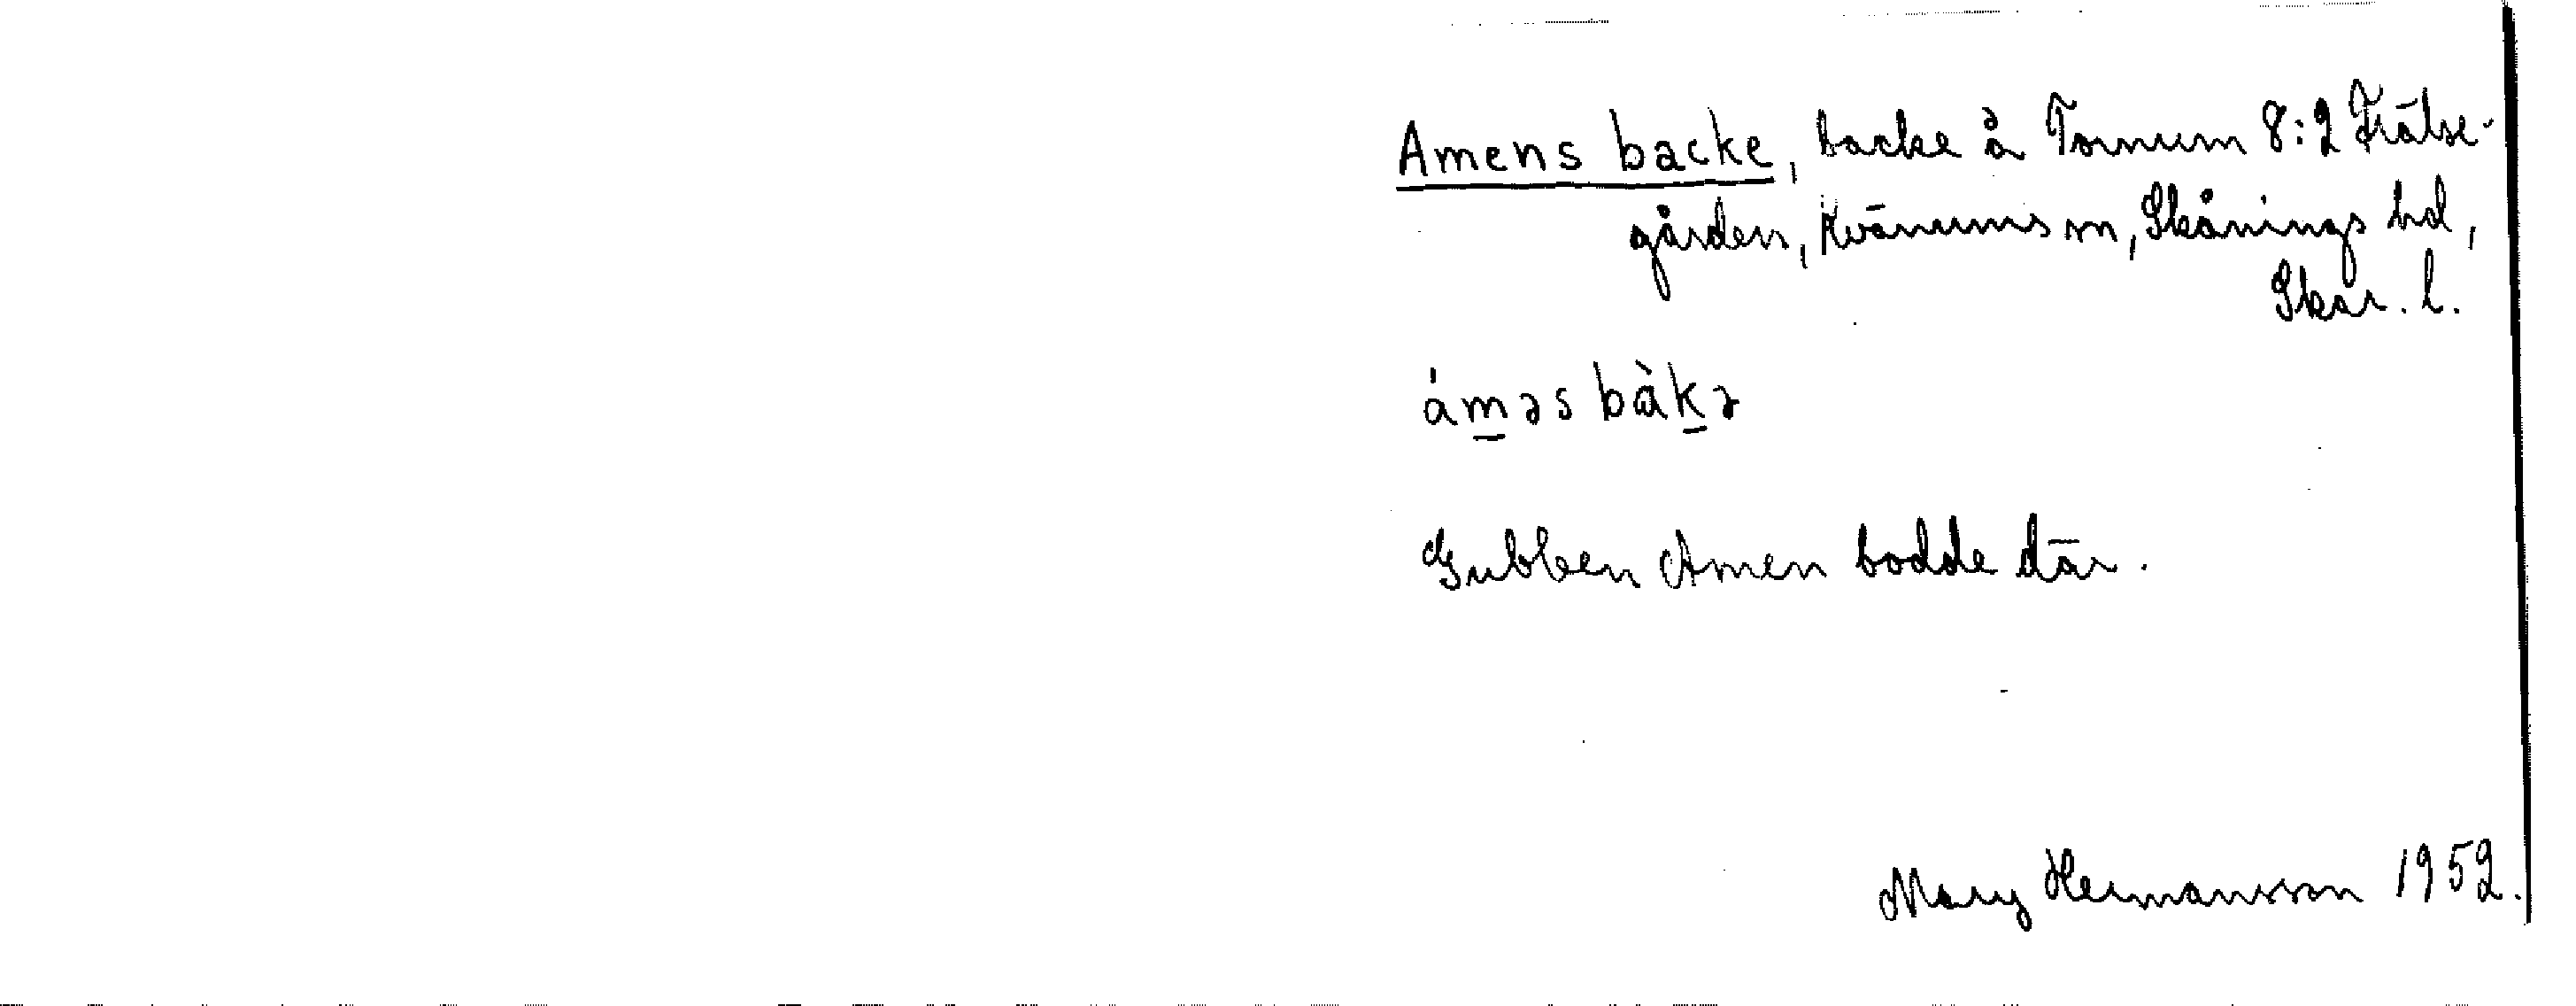 Amens backe, backe å Tornum 8:2 Frälse-
gården, Kvänums sn, Skånings hd,
Skar. l.
ámǝs bàkǝ
Gubben Amen bodde där.
Mary Hermansson 1952.